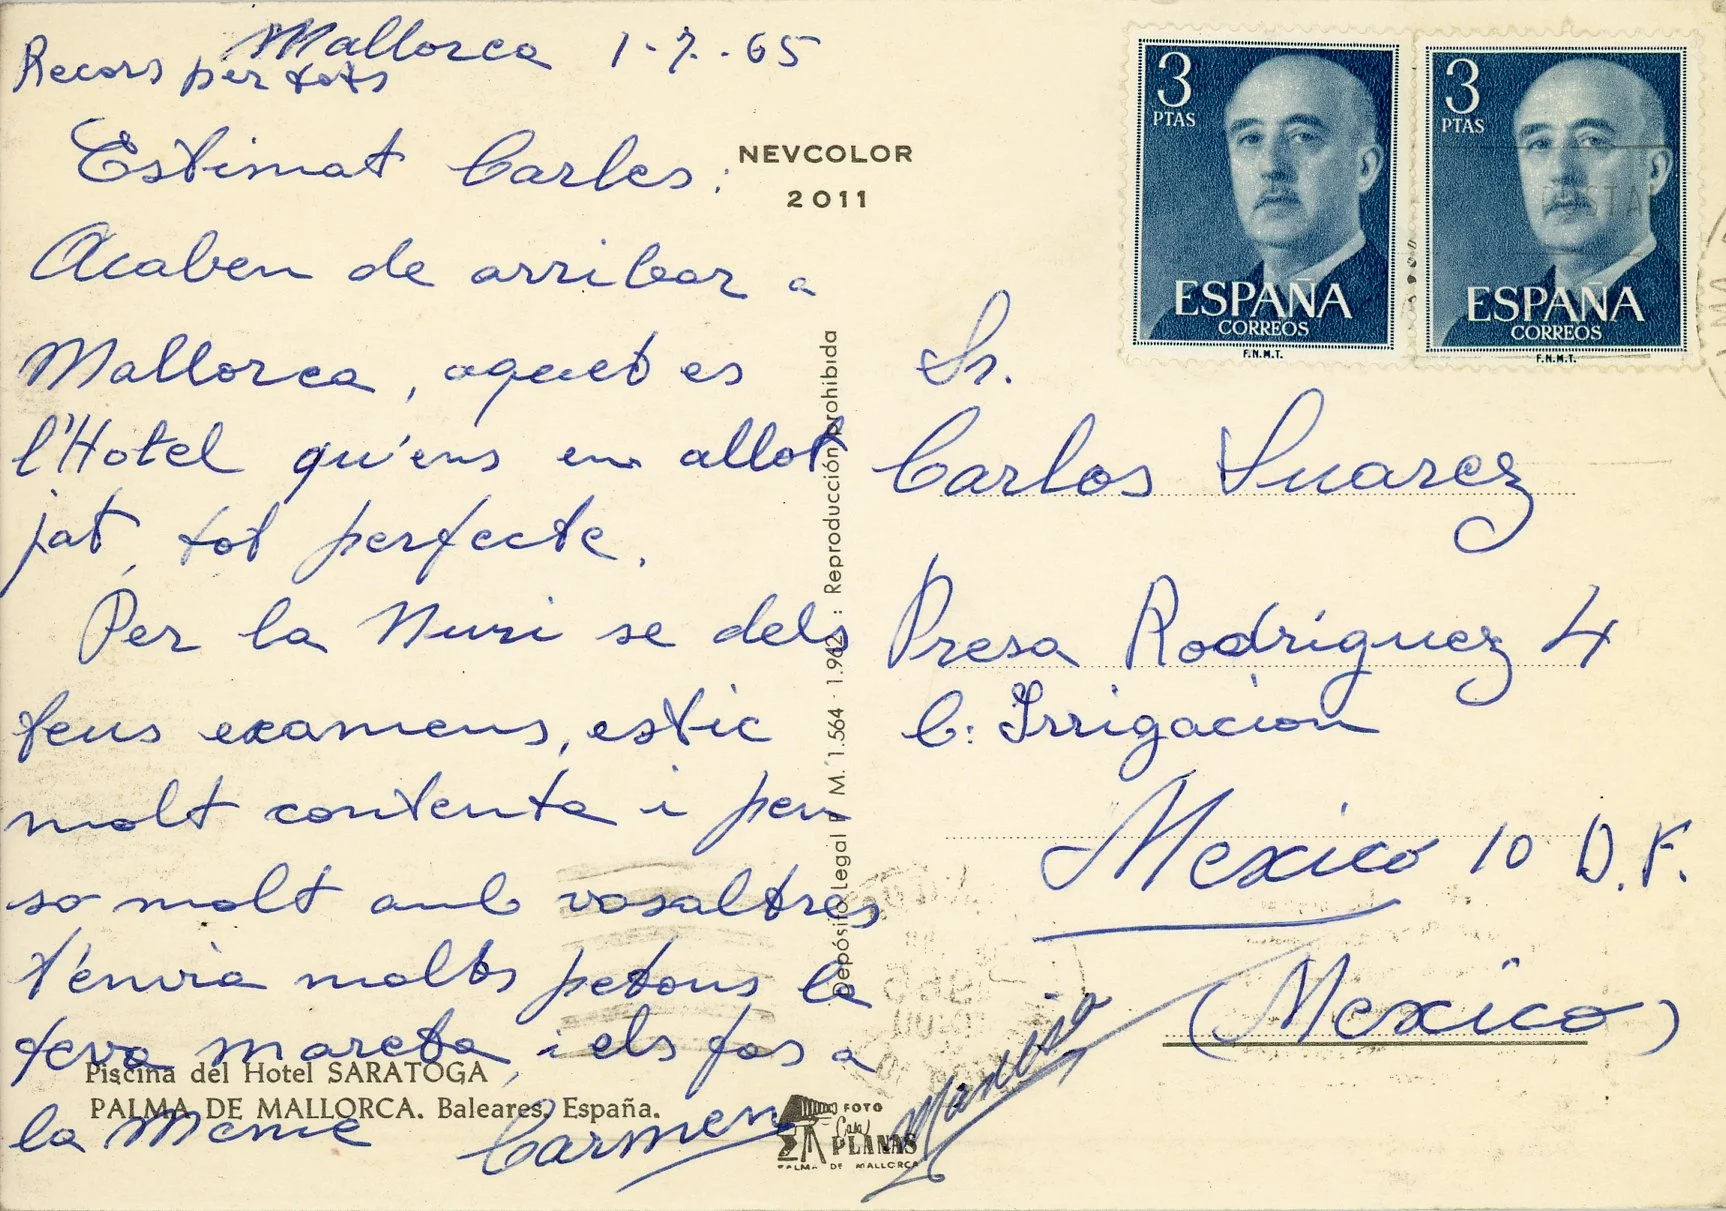 Mallorca 1-7.-65
Recors per tots
Estimat Carles:
Acaben de arribar a
Mallorca, aquet es
l'Hotel qu'ens em allot
jat, tot perfecte.
Per la Nuri se dels
teus examens, estic
molt contenta i pen
so molt amb vosaltres
t'envia molts petons la
teva mareta, i els fas a
la Meme Carmen
NEVCOLOR
2011
3
PTAS
ESPAÑA
CORREOS
F.N.M.T.
3
PTAS
ESPAÑA
CORREOS
F.N.M.T.
Sr.
Carlos Suarez
Presa Rodríguez 4
C: Irrigacion
Mexico 10 D.F.
(Mexico)
Depósito Legal P. M. 1.564 - 1.962 : Reproducción prohibida
Piscina del Hotel SARATOGA
PALMA DE MALLORCA. Baleares, España.
FOTO
Casa
PLANAS
PALMA DE MALLORCA